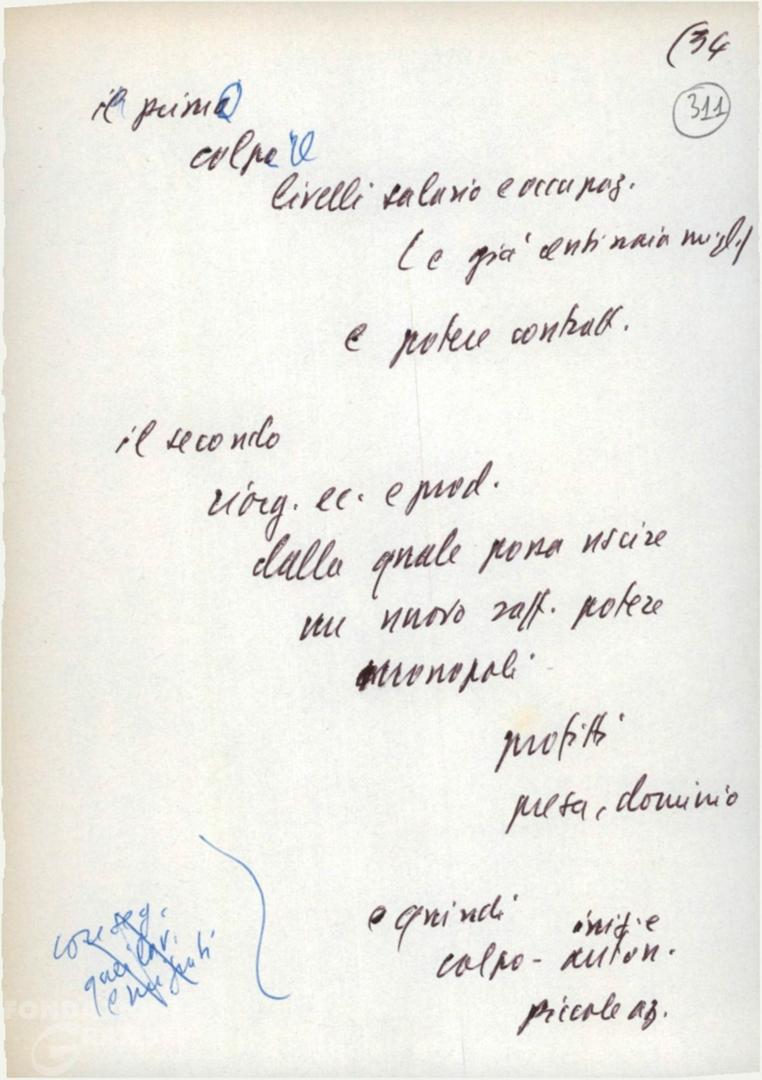 (34
311
il primo
colpo il
livelli salario e occupaz.
(e già centinaia migl.)
e potere contratt.
il secondo
riorg. ec. e prod.
dalla quale possa uscire
un nuovo raff. potere
monopoli
profitti
presa, dominio
e quindi
iniz. e
colpo - auton.
piccole az.